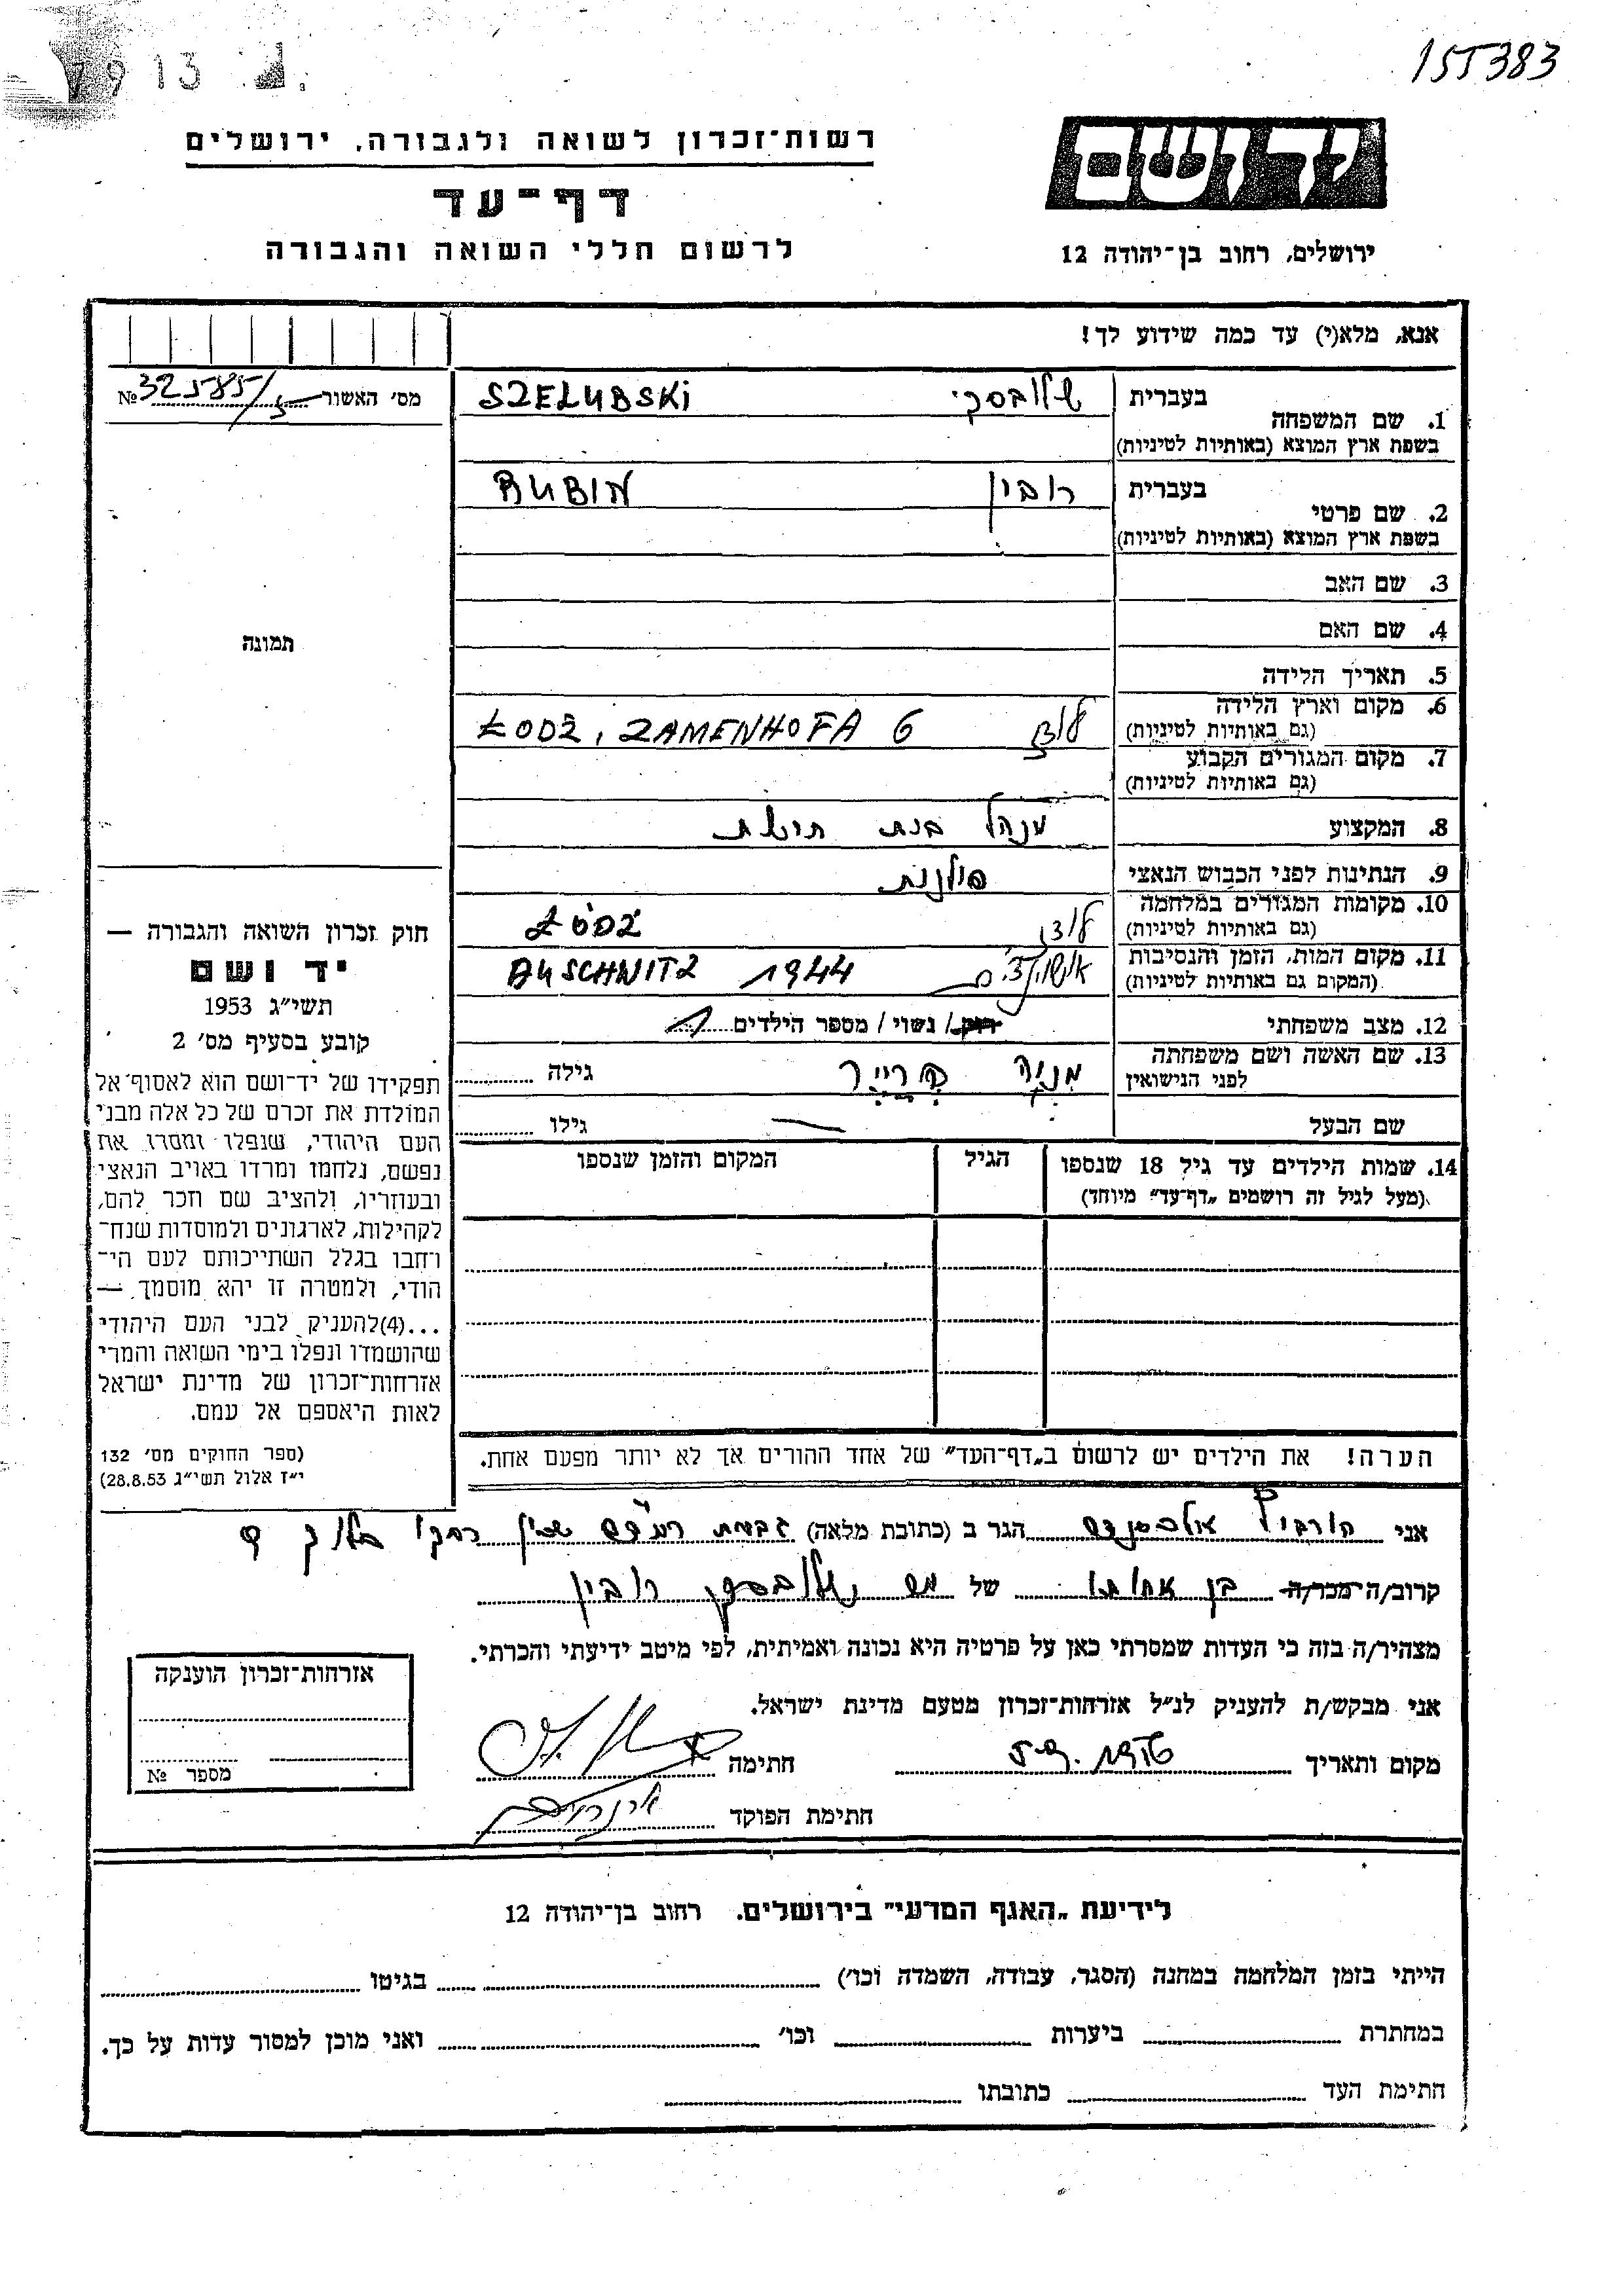 155383
רשות־זכרון לשואה ולגבורה, ירושלים
דף־עד
לרשום חללי השואה והגבורה
יד ושם
ירושלים, רחוב בן־יהודה 12
אנא, מלא(י) עד כמה שידוע לך!
מס׳ האשור № 32585/
1. שם המשפחה
בעברית שלובסקי SZELUBSKI
בשפת ארץ המוצא (באותיות לטיניות)
2. שם פרטי
בעברית רובין RUBIN
בשפת ארץ המוצא (באותיות לטיניות)
3. שם האב
4. שם האם
תמונה
5. תאריך הלידה
6. מקום וארץ הלידה
(גם באותיות לטיניות) לודז ŁODŹ, ZAMENHOFA 6
7. מקום המגורים הקבוע
(גם באותיות לטיניות)
8. המקצוע מנהל בית
9. הנתינות לפני הכבוש הנאצי פולנית
10. מקומות המגורים במלחמה
(גם באותיות לטיניות) לודז ŁÓDŹ
11. מקום המות, הזמן והנסיבות
(המקום גם באותיות לטיניות) AUSCHNITZ 1944
12. מצב משפחתי רווק / נשוי / מספר הילדים 1
13. שם האשה ושם משפחתה
לפני הנישואין גילה
שם הבעל — גילו
14. שמות הילדים עד גיל 18 שנספו הגיל המקום והזמן שנספו
(מעל לגיל זה רושמים „דף־עד״ מיוחד)
חוק זכרון השואה והגבורה —
יד ושם
תשי״ג 1953
קובע בסעיף מס׳ 2
תפקידו של יד־ושם הוא לאסוף אל
המולדת את זכרם של כל אלה מבני
העם היהודי, שנפלו ומסרו את
נפשם, נלחמו ומרדו באויב הנאצי
ובעוזריו, ולהציב שם וזכר להם,
לקהילות, לארגונים ולמוסדות שנח־
רחבו בגלל השתייכותם לעם הי־
הודי, ולמטרה זו יהא מוסמך —
...(4)להעניק לבני העם היהודי
שהושמדו ונפלו בימי השואה והמרי
אזרחות־זכרון של מדינת ישראל
לאות היאספם אל עמם.
(ספר החוקים מס׳ 132
י״ז אלול תשי״ג 28.8.53)
הערה! את הילדים יש לרשום ב„דף־העד״ של אחד ההורים אך לא יותר מפעם אחת.
אני הורביץ אלכסנדר הגר ב (כתובת מלאה) גבעת
קרוב/ה מכר/ה בן אחותו של מר שלובסקי רובין
מצהיר/ה בזה כי העדות שמסרתי כאן על פרטיה היא נכונה ואמיתית, לפי מיטב ידיעתי והכרתי.
אני מבקש/ת להעניק לנ״ל אזרחות־זכרון מטעם מדינת ישראל.
מקום ותאריך חתימה
חתימת הפוקד
אזרחות־זכרון הוענקה
מספר №
לידיעת „האגף המדעי״ בירושלים. רחוב בן־יהודה 12
הייתי בזמן המלחמה במחנה (הסגר, עבודה, השמדה וכו׳) בגיטו
במחתרת ביערות וכו׳ ואני מוכן למסור עדות על כך.
חתימת העד כתובתו